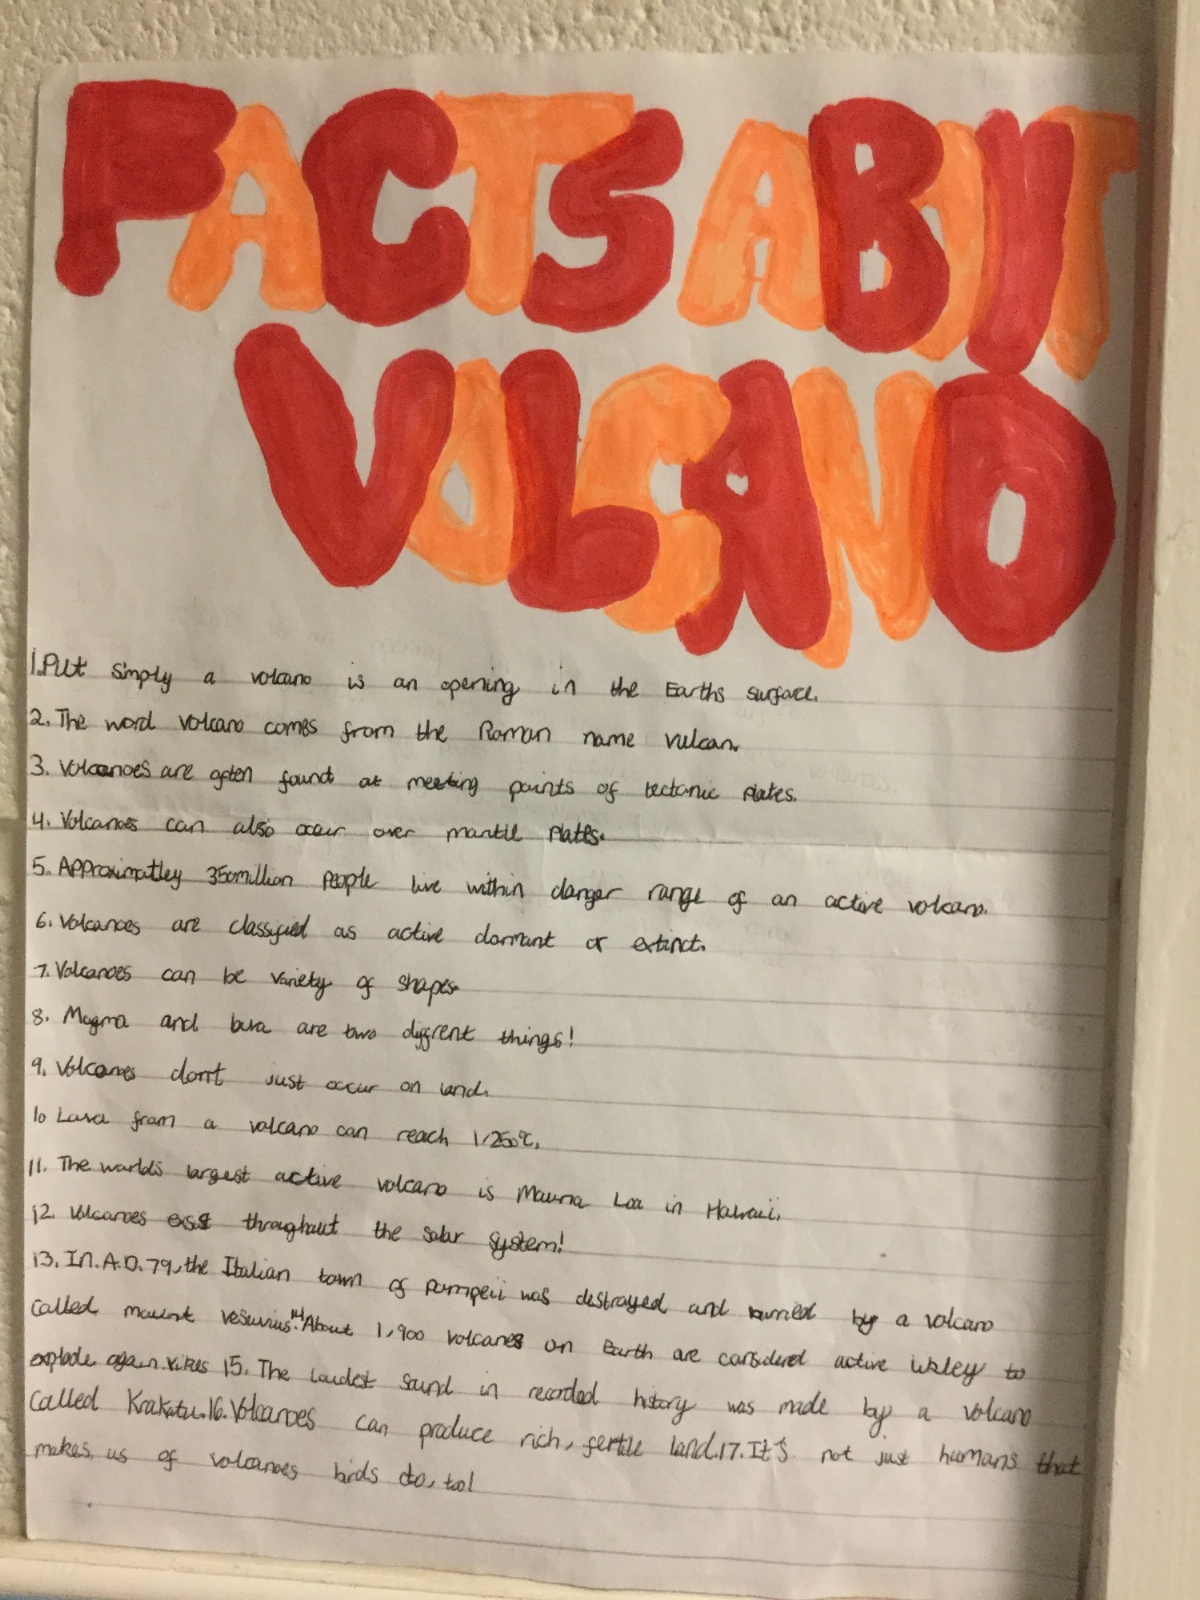 FACTS ABOUT
VOLCANO
1. Put simply a volcano is an opening in the Earths surface.
2. The word volcano comes from the Roman name vulcan.
3. Volcanoes are often found at meeting points of tectonic plates.
4. Volcanoes can also occur over mantle plates.
5. Approximatley 350million people live within danger range of an active volcano.
6. Volcanoes are classified as active dormant or extinct.
7. Volcanoes can be variety of shapes.
8. Magma and lava are two diffrent things!
9. Volcanoes don't just occur on land.
10 Lava from a volcano can reach 1,250°C.
11. The world's largest active volcano is Mauna Loa in Hawaii.
12. Volcanoes exist throughout the solar system!
13. In A.D. 79, the Italian town of pompeii was destroyed and burried by a volcano
called mount vesuvius. 14. About 1,900 volcanoes on Earth are considered active likley to
explode again. Yikes 15. The loudest sound in recorded history was made by a volcano
called Krakatu. 16. Volcanoes can produce rich, fertile land. 17. It's not just humans that
makes us of volcanoes birds do, too!